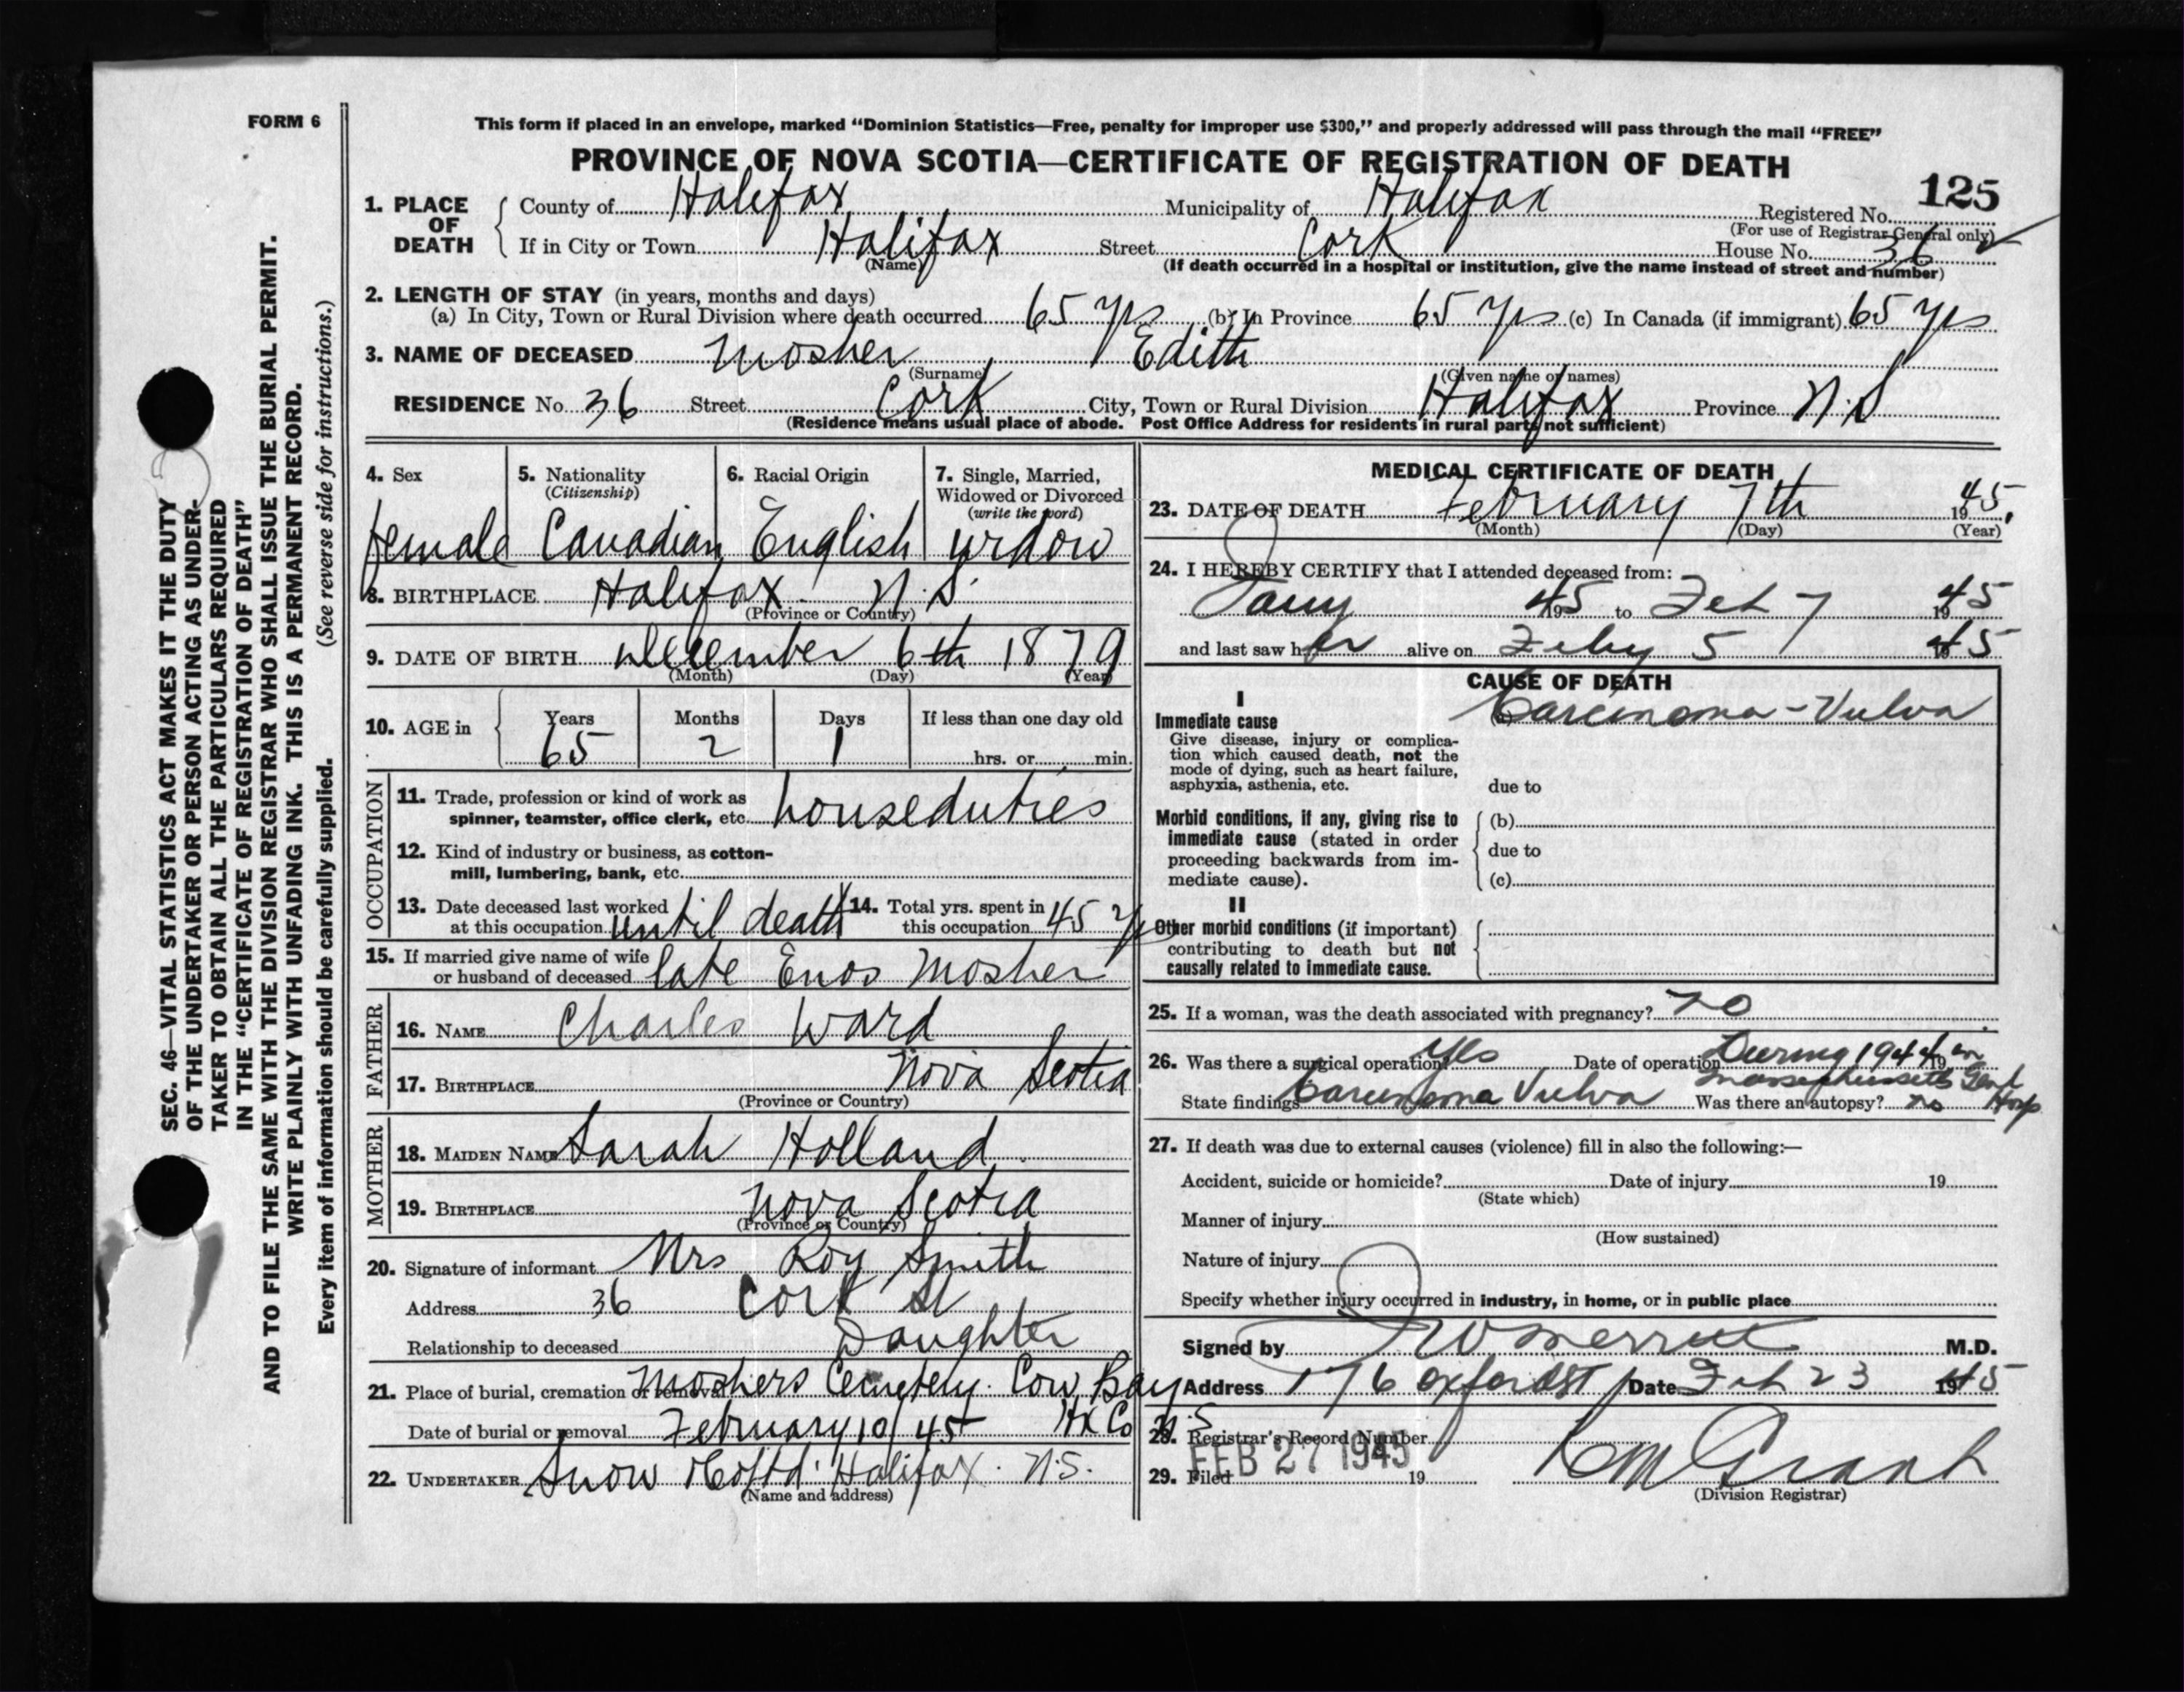 FORM 6
This form if placed in an envelope, marked "Dominion Statistics—Free, penalty for improper use $300," and properly addressed will pass through the mail "FREE"
PROVINCE OF NOVA SCOTIA—CERTIFICATE OF REGISTRATION OF DEATH
125
1. PLACE OF DEATH
County of Halifax Municipality of Halifax Registered No.
(For use of Registrar General only)
If in City or Town Halifax Street Cork House No. 36
(Name) (If death occurred in a hospital or institution, give the name instead of street and number)
2. LENGTH OF STAY (in years, months and days)
(a) In City, Town or Rural Division where death occurred 65 yrs (b) In Province 65 yrs (c) In Canada (if immigrant) 65 yrs
3. NAME OF DECEASED Mosher Edith
(Surname) (Given name or names)
RESIDENCE No. 36 Street Cork City, Town or Rural Division Halifax Province N.S
(Residence means usual place of abode. Post Office Address for residents in rural parts not sufficient)
4. Sex 5. Nationality 6. Racial Origin 7. Single, Married,
(Citizenship) Widowed or Divorced
(write the word)
female Canadian English widow
8. BIRTHPLACE Halifax N.S.
(Province or Country)
9. DATE OF BIRTH December 6th 1879
(Month) (Day) (Year)
10. AGE in Years Months Days If less than one day old
65 2 1 hrs. or min.
OCCUPATION
11. Trade, profession or kind of work as
spinner, teamster, office clerk, etc. houseduties
12. Kind of industry or business, as cotton-
mill, lumbering, bank, etc.
13. Date deceased last worked 14. Total yrs. spent in
at this occupation until death this occupation 45 yrs
15. If married give name of wife
or husband of deceased late Enos Mosher
FATHER
16. NAME Charles Ward
17. BIRTHPLACE Nova Scotia
(Province or Country)
MOTHER
18. MAIDEN NAME Sarah Holland
19. BIRTHPLACE Nova Scotia
(Province or Country)
20. Signature of informant Mrs Roy Smith
Address 36 Cork St
Relationship to deceased Daughter
21. Place of burial, cremation or removal Moshers Cemetery. Cow Bay
Date of burial or removal February 10/45 Hx Co N.S
22. UNDERTAKER Snow & Co Ltd. Halifax. N.S.
(Name and address)
MEDICAL CERTIFICATE OF DEATH
23. DATE OF DEATH February 7th 1945.
(Month) (Day) (Year)
24. I HEREBY CERTIFY that I attended deceased from:
Jany 1945 to Feb 7 1945
and last saw her alive on Feby 5 1945
CAUSE OF DEATH
I
Immediate cause (a) Carcinoma - Vulva
Give disease, injury or complica-
tion which caused death, not the
mode of dying, such as heart failure,
asphyxia, asthenia, etc. due to
Morbid conditions, if any, giving rise to (b)
immediate cause (stated in order
proceeding backwards from im- due to
mediate cause). (c)
II
Other morbid conditions (if important)
contributing to death but not
causally related to immediate cause.
25. If a woman, was the death associated with pregnancy? no
26. Was there a surgical operation? Yes Date of operation During 1944 19 in
Massachusetts Genl
State findings Carcinoma Vulva Was there an autopsy? no Hosp
27. If death was due to external causes (violence) fill in also the following:—
Accident, suicide or homicide? Date of injury 19
(State which)
Manner of injury
(How sustained)
Nature of injury
Specify whether injury occurred in industry, in home, or in public place
Signed by Merritt M.D.
Address 176 Oxford St Date Feb 23 1945
28. Registrar's Record Number
FEB 27 1945
29. Filed 19 Grant
(Division Registrar)
SEC. 46—VITAL STATISTICS ACT MAKES IT THE DUTY
OF THE UNDERTAKER OR PERSON ACTING AS UNDER-
TAKER TO OBTAIN ALL THE PARTICULARS REQUIRED
IN THE "CERTIFICATE OF REGISTRATION OF DEATH"
AND TO FILE THE SAME WITH THE DIVISION REGISTRAR WHO SHALL ISSUE THE BURIAL PERMIT.
WRITE PLAINLY WITH UNFADING INK. THIS IS A PERMANENT RECORD.
Every item of information should be carefully supplied. (See reverse side for instructions.)